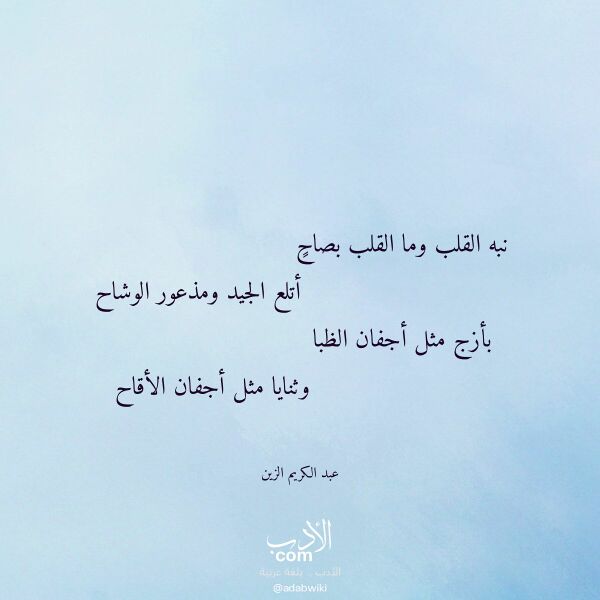 نبه القلب وما القلب بصاحٍ
أتلع الجيد ومذعور الوشاح
بأزج مثل أجفان الظبا
وثنايا مثل أجفان الأقاح
عبد الكريم الزين
الأدب
com
الأدب .. بلغة عربية
@adabwiki